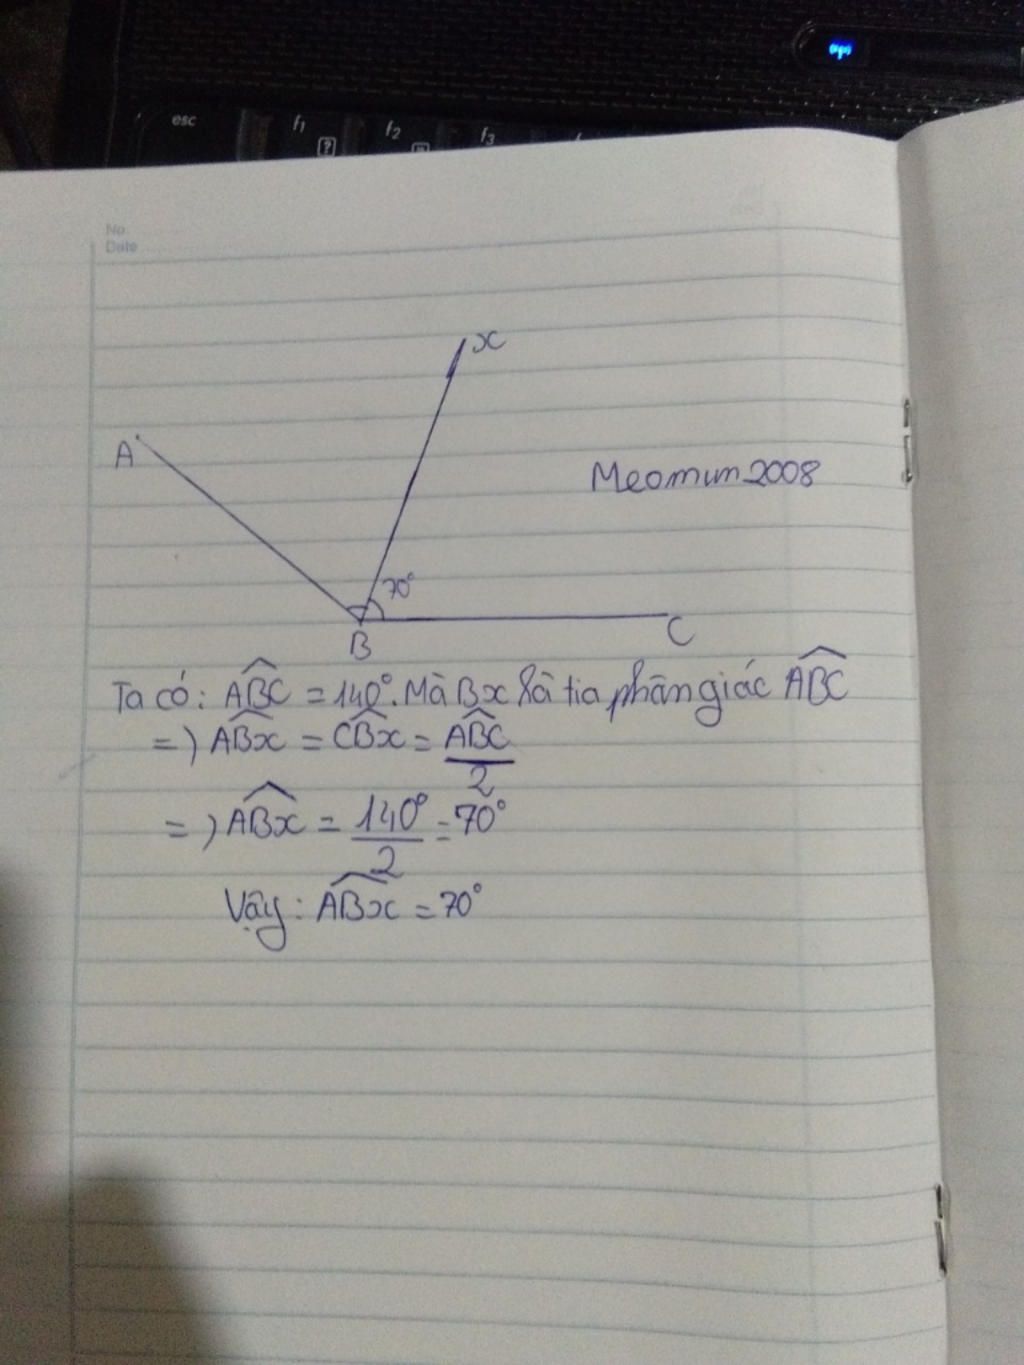 esc f1 f2 f3
No.
Date
x
A
Meomun2008
70°
B C
Ta có: ABC = 140°. Mà Bx là tia phân giác ABC
=) ABx = CBx = ABC/2
=) ABx = 140°/2 = 70°
Vậy: ABx = 70°